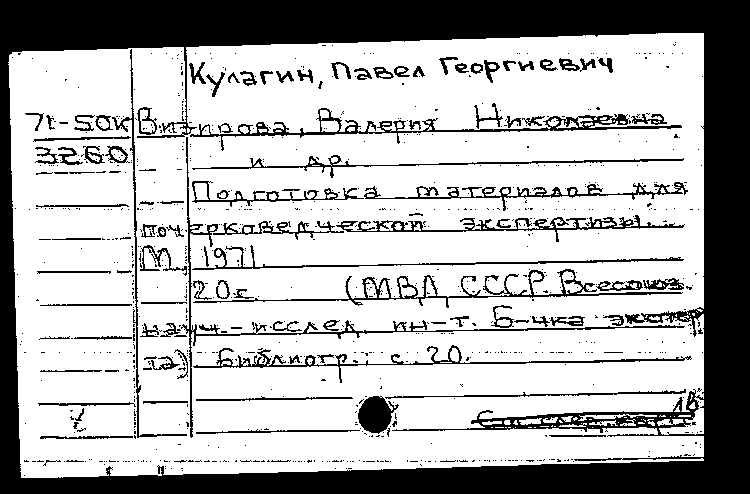 Кулагин, Павел Георгиевич
71-50к Визирова, Валерия Николаевна
3260 и др.
Подготовка материалов для
почерковедческой экспертизы.
М. 1971
20с (МВД СССР. Всесоюз.
науч.-исслед. ин-т. Б-чка экспер
та) Библиогр.: с. 20.
См. след. карт. 1В